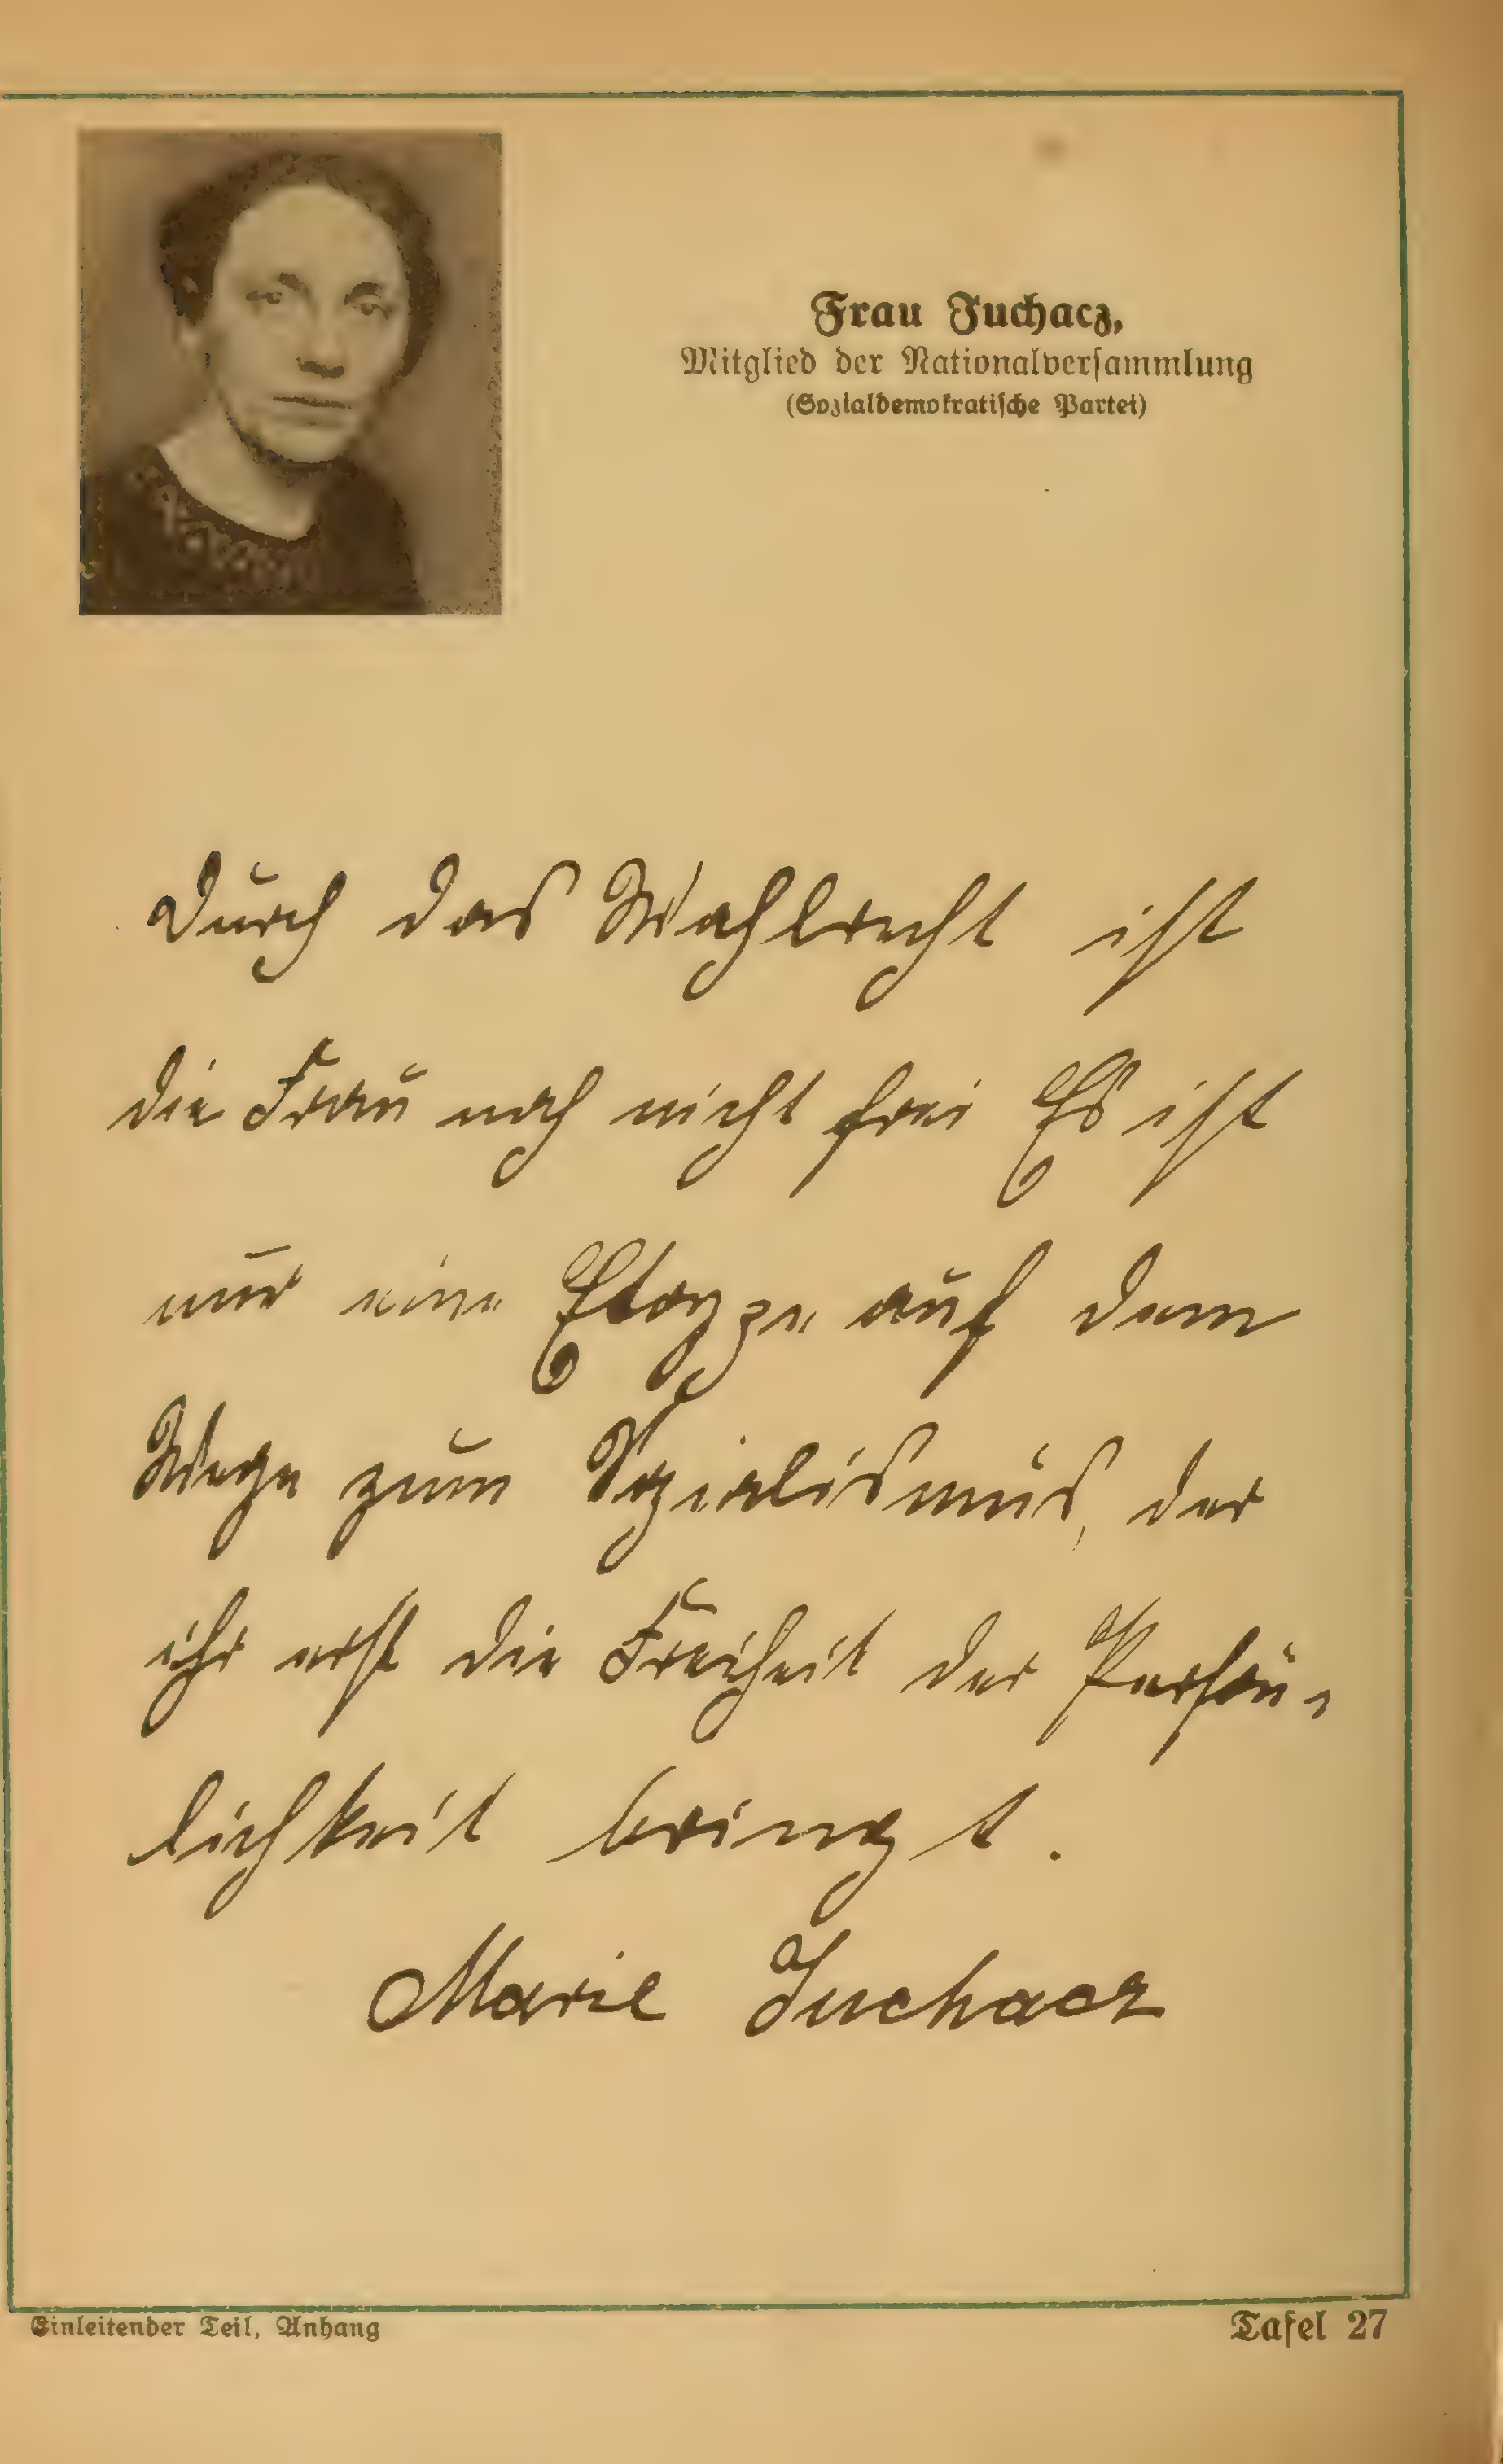 Frau Juchacz,
Mitglied der Nationalversammlung
(Sozialdemokratische Partei)
Durch das Wahlrecht ist
die Frau noch nicht frei Es ist
nur eine Etappe auf dem
Wege zum Sozialismus, der
ihr erst die Freiheit der Persön-
lichkeit bringt.
Marie Juchacz
Einleitender Teil, Anhang
Tafel 27